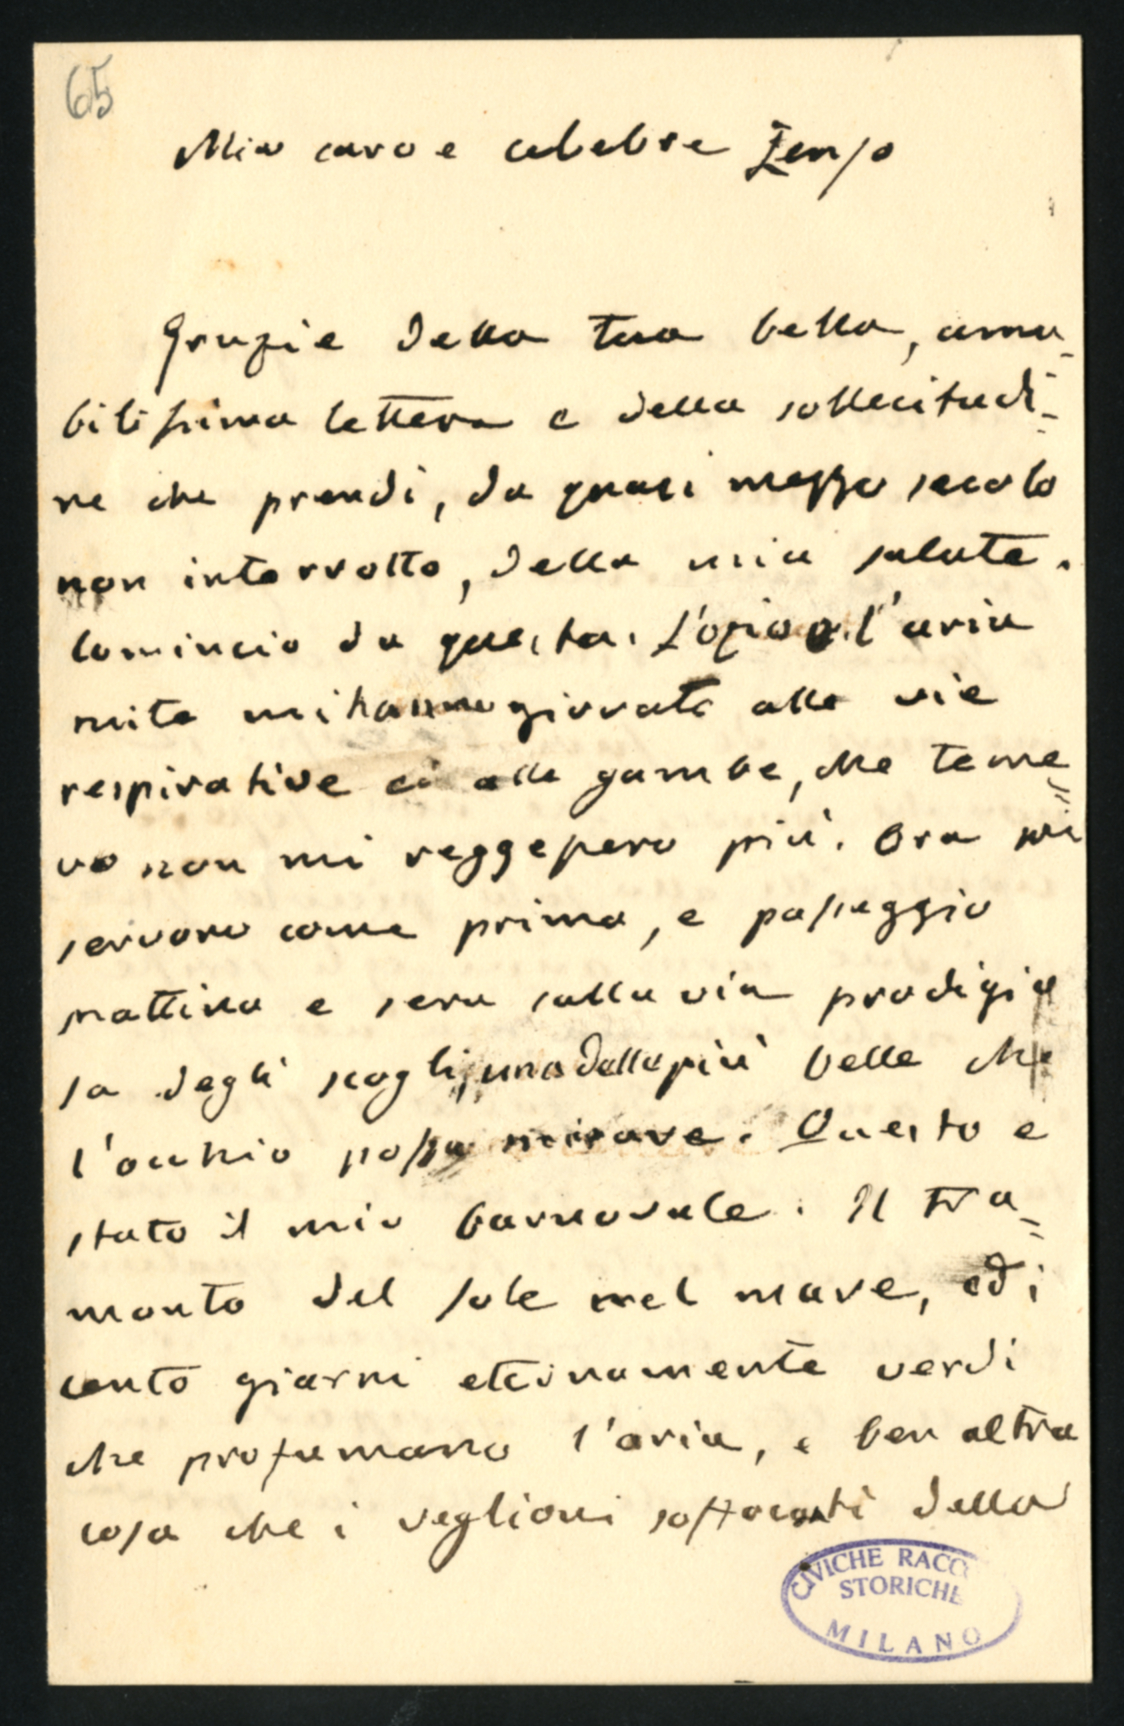 65
Mio caro e celebre Renzo
Grazie della tua bella, ama-
bilissima lettera e della sollecitudi-
ne che prendi, da quasi mezzo secolo
non interrotto, della mia salute.
Comincio da questa. L'ozio e l'aria
mite mi hanno giovato alle vie
respirative ed alle gambe, che teme-
vo non mi reggessero più. Ora mi
servono come prima, e passeggio
mattina e sera sulla via prodigio
sa degli scogli, una delle più belle che
l'occhio possa mirare. Questo e
stato il mio carnovale. Il tra-
monto del sole nel mare, ed i
cento giarni eternamente verdi
che profumano l'aria, e ben altra
cosa che i veglioni soffocanti della
CIVICHE RACCO
STORICHE
MILANO